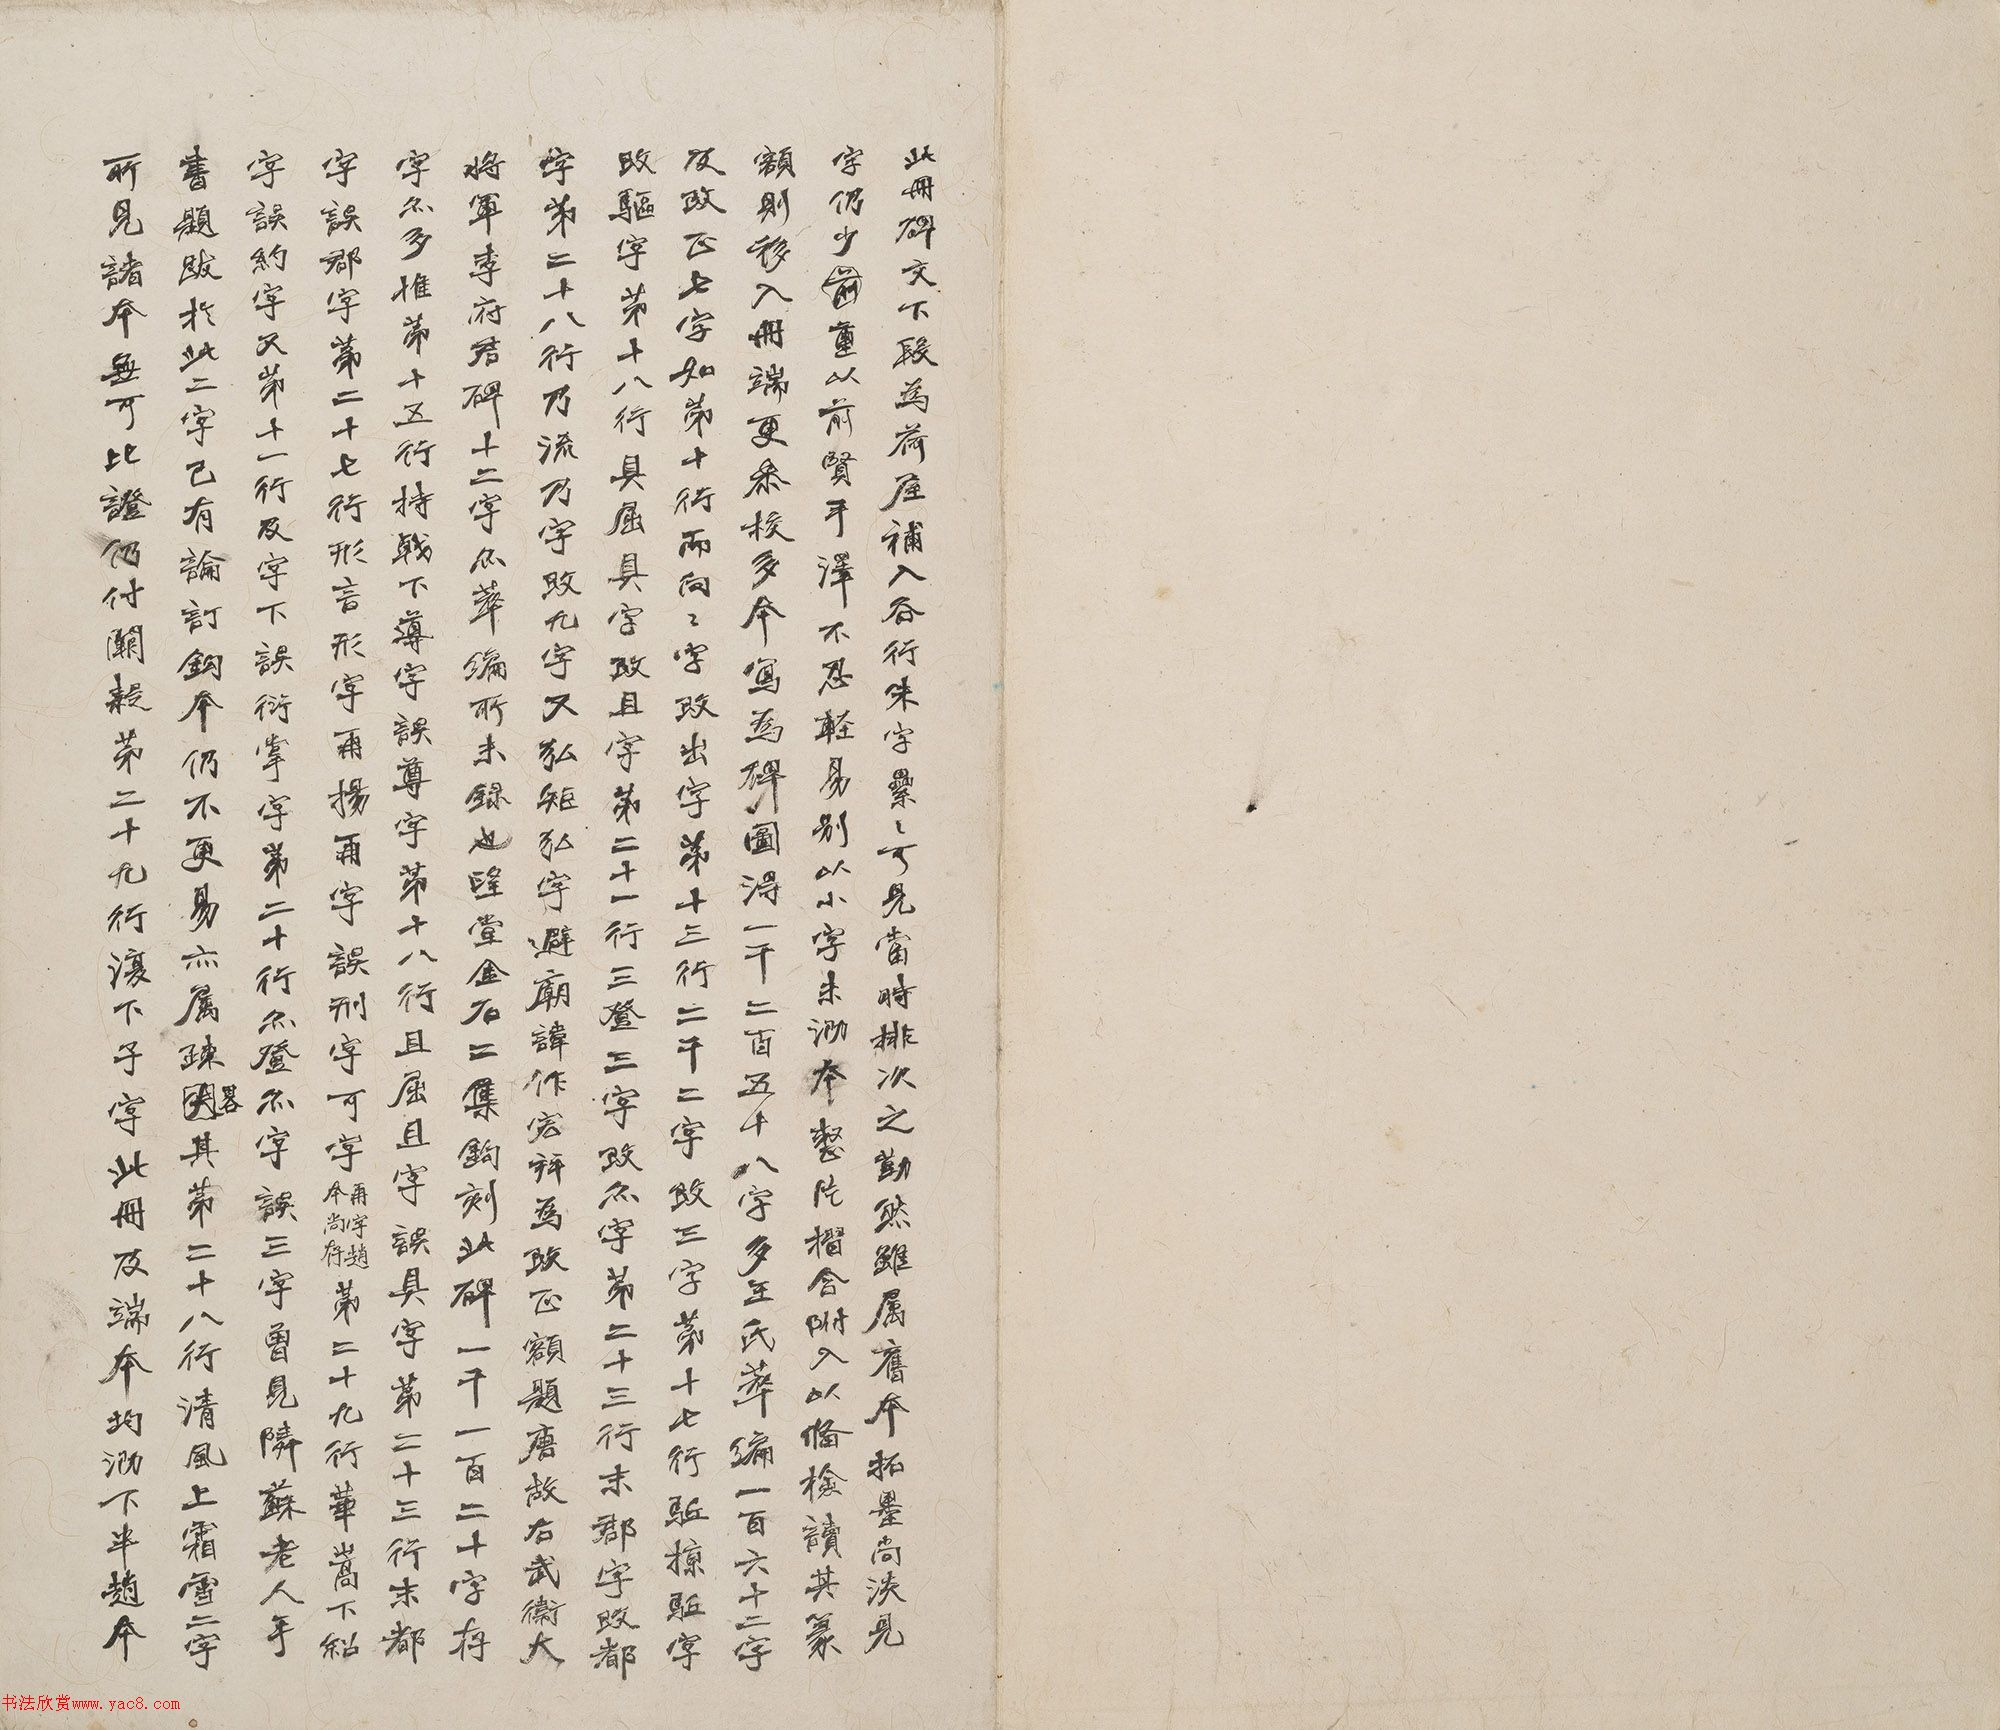 此冊碑文下段為荷屋補入各行朱字纍〻可見當時排次之勤然雖属舊本拓墨尚淡見
字仍少前重以前賢手澤不忍輕易別以小字未泐本整片摺合附入以備檢讀其篆
額則移入冊端更叅校多本寫為碑圖淂一千二百五十八字多王氏萃編一百六十二字
及改正七字如第十行而向〻字改出字第十三行二千二字改三字第十七行駈掠駈字
改驅字第十八行具屈具字改且字第二十一行三登三字改尒字第二十三行末郡字改都
字第二十八行乃流乃字改九字又弘矩弘字避廟諱作宏并為改正額題唐故右武衛大
將軍李府君碑十二字尒萃編所未録也望堂金石二集鈎刻此碑一千一百二十字存
字尒多惟第十五行持戟下蓴字誤尊字第十八行且屈且字誤具字第二十三行末都
字誤郡字第二十七行形言形字再揚再字誤刑字可字再字趙本尚存第二十九行華嵩下紹
字誤約字又第十一行及字下誤衍掌字第二十行尒登尒字誤三字曾見隣蘇老人手
書題跋於此二字已有論訂鈎本仍不更易亦属疎畧其第二十八行清風上霜雪二字
所見諸本無可比證仍付闕疑第二十九行濅下子字此冊及端本均泐下半趙本
书法欣赏www.yac8.com